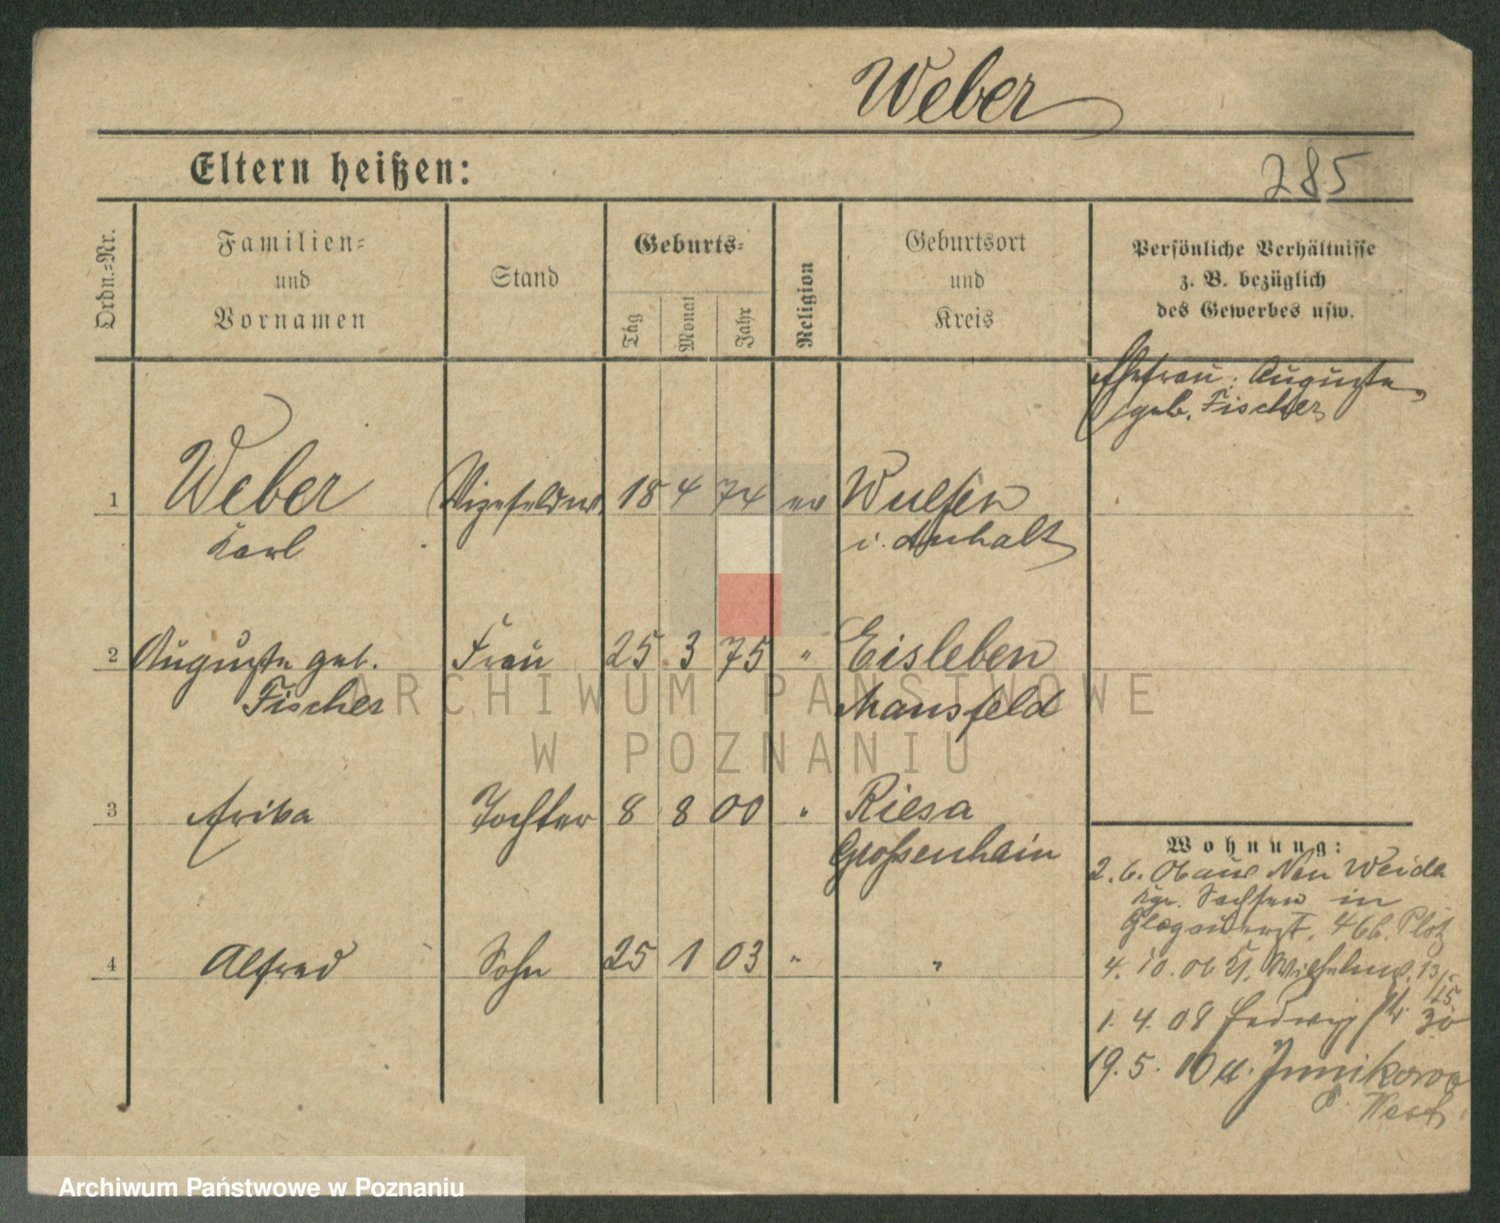 Weber
Eltern heißen:
285
Ordn.-Nr.
Familien-
und
Vornamen
Stand
Geburts-
Tag
Monat
Jahr
Religion
Geburtsort
und
Kreis
Persönliche Verhältnisse
z. B. bezüglich
des Gewerbes usw.
Ehefrau: Auguste,
geb. Fischer
1 Weber Vizefeldw. 18 4 74 ev Wulfen
Karl i. Anhalt
2 Auguste geb. Frau 25 3 75 " Eisleben
Fischer Mansfeld
3 Erika Tochter 8 8 00 " Riesa
Großenhain
4 Alfred Sohn 25 1 03 " "
Wohnung:
2. 6. 06 aus Weida
Kgr. Sachsen in
46b.
4. 10. 06 13/15
1. 4. 08 Hedwig str 30
19. 5. 10 Junikowo
P. West
ARCHIWUM PAŃSTWOWE
W POZNANIU
Archiwum Państwowe w Poznaniu